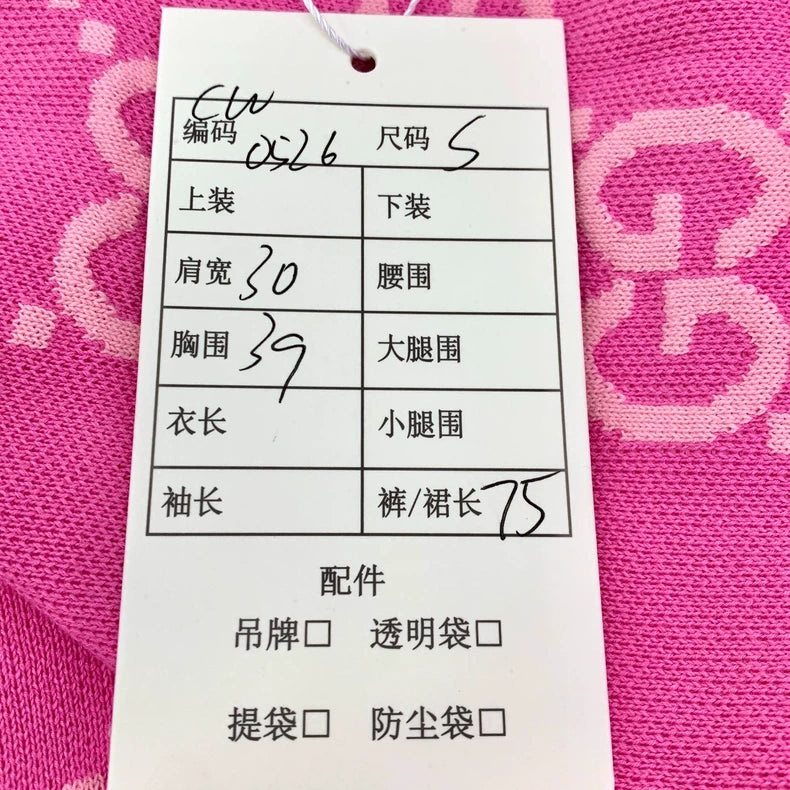 CW
编码 0526 尺码 S
上装 下装
肩宽 30 腰围
胸围 39 大腿围
衣长 小腿围
袖长 裤/裙长 75
配件
吊牌□ 透明袋□
提袋□ 防尘袋□